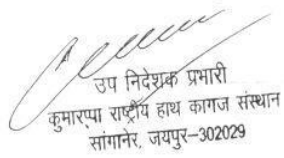 उप निदेशक प्रभारी
कुमारप्पा राष्ट्रीय हाथ कागज संस्थान
सांगानेर, जयपुर–302029